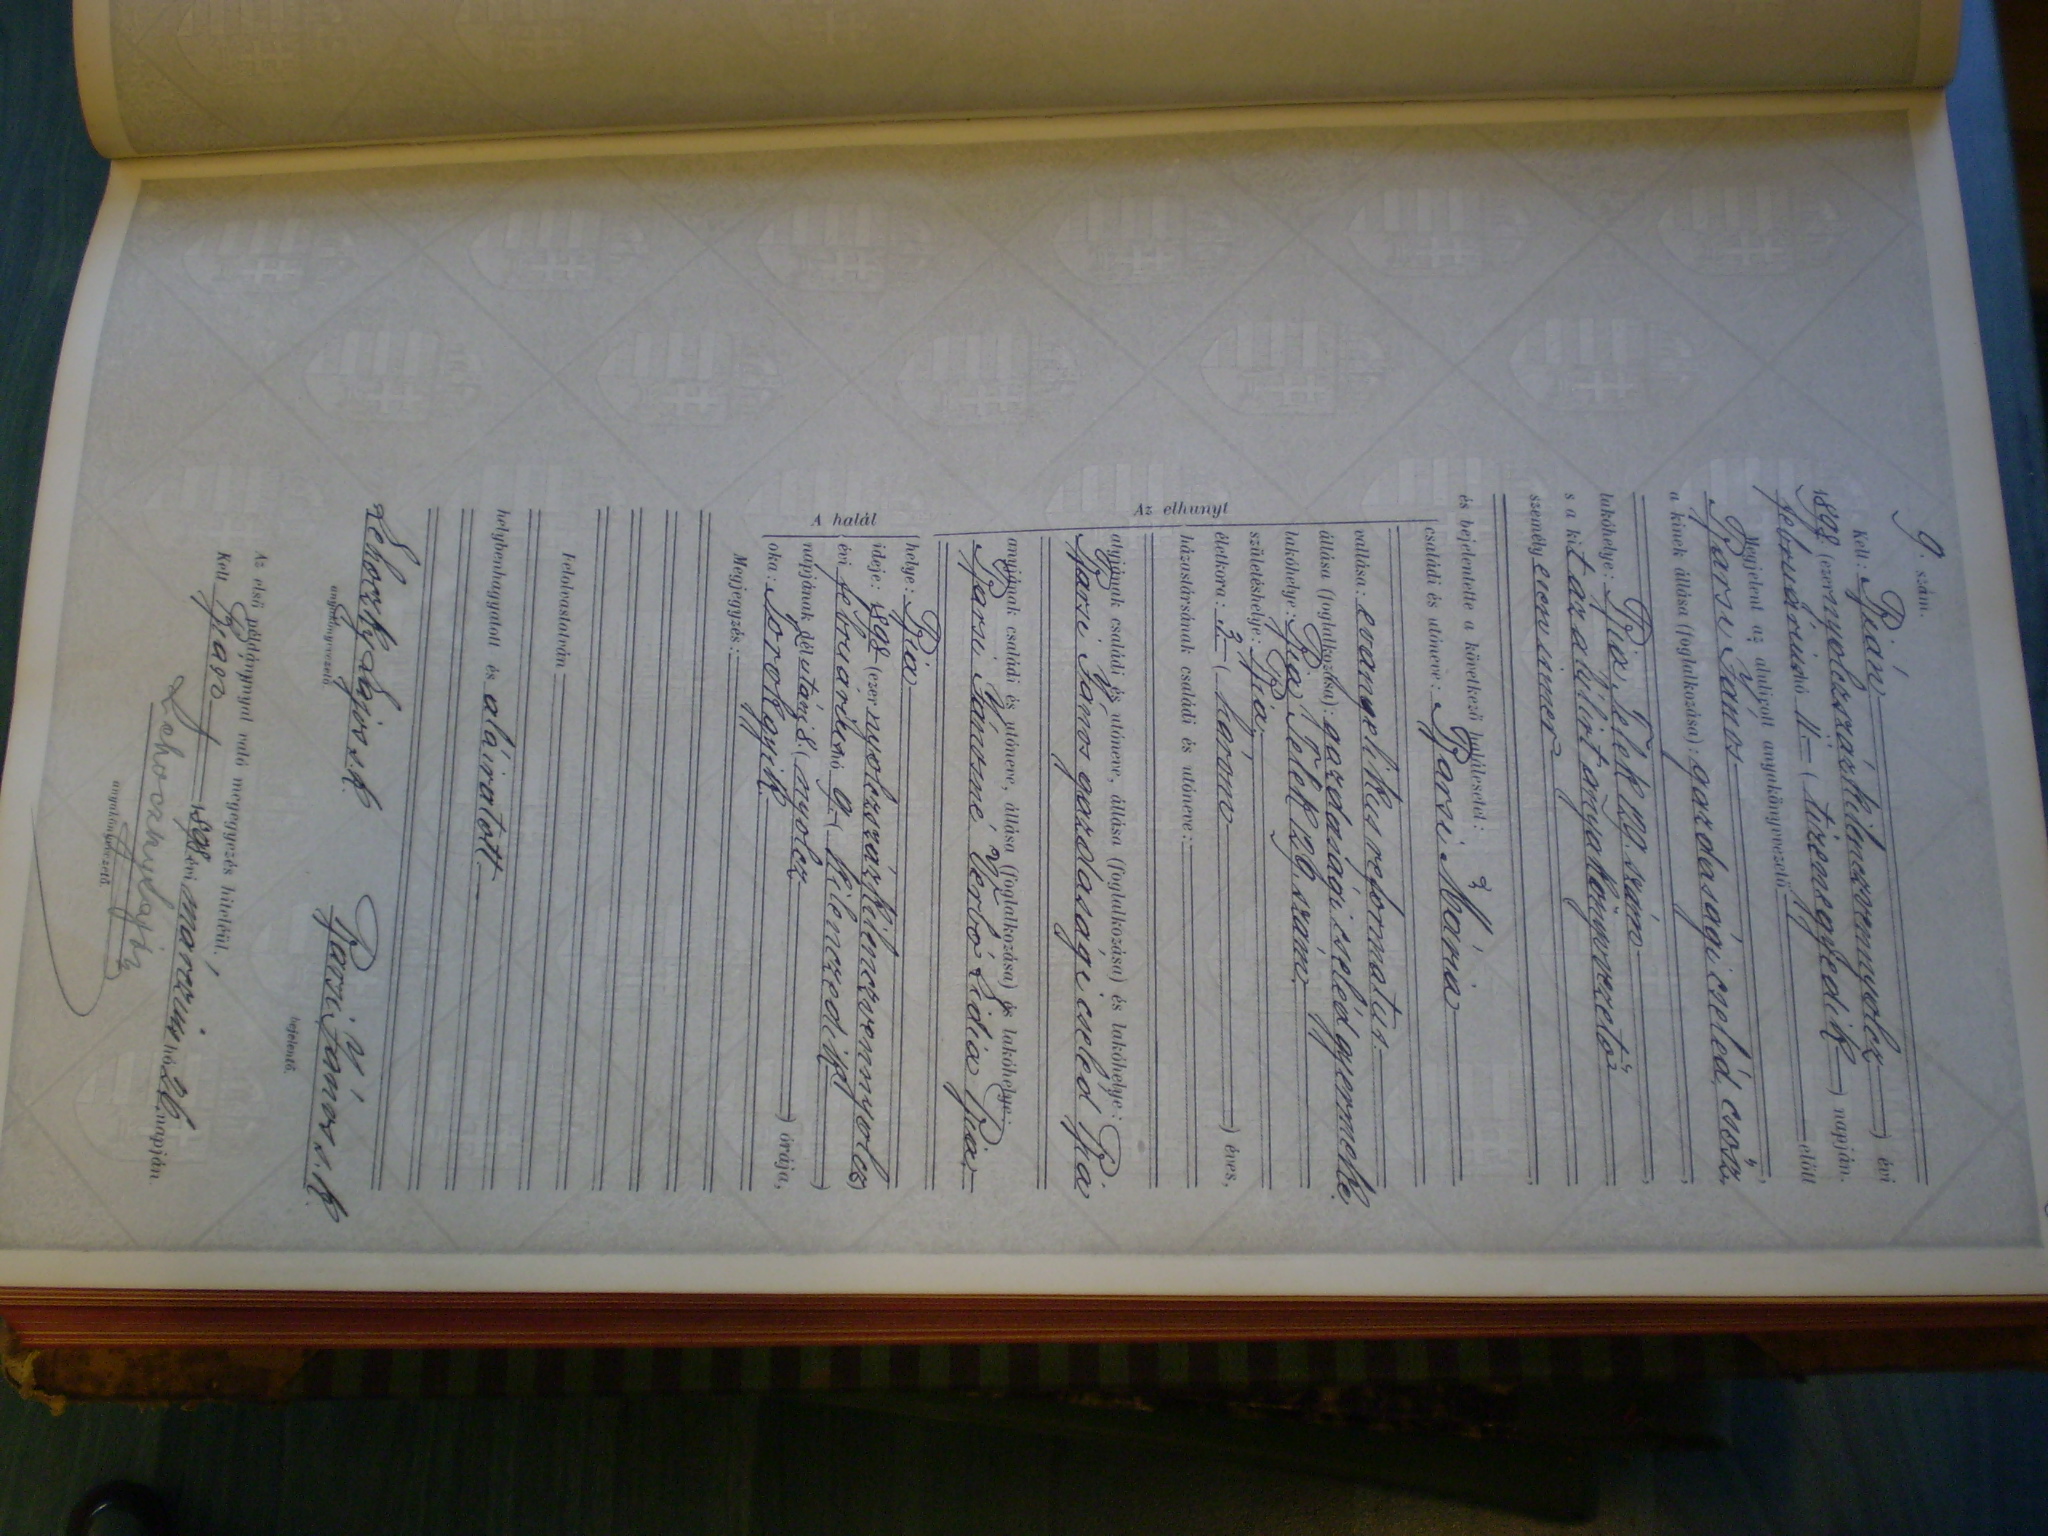 9. szám.
Kelt: Bián 
1898 (ezernyolczszázkilenczvennyolcz) évi
februárius hó 11.— (tizenegyedik) napján.
Megjelent az alulírott anyakönyvvezető előtt
Barsi János,
a kinek állása (foglalkozása): gazdasági cseléd, csősz,
lakóhelye: Bia, Telek 129. szám,
s a kit az alulirt anyakönyvvezető
személyesen ismer
és bejelentette a következő halálesetet:
Az elhunyt
családi és utóneve: Barsi Mária
vallása: evangelikus reformatus.
állása (foglalkozása): gazdasági cseléd gyermeke.
lakóhelye: Bia, Telek 129. szám.
születéshelye: Bia,
életkora: 3.— (három) éves,
házastársának családi és utóneve:
atyjának családi és utóneve, állása (foglalkozása) és lakóhelye:
Barsi János gazdasági cseléd Bia
anyjának családi és utóneve, állása (foglalkozása) és lakóhelye:
Barsi Jánosné, Lidia Bia.
A halál
helye: Bia
ideje: 1898 (ezernyolczszázkilenczvennyolcz)
évi februárius hó 9.— (kilenczedik)
napjának délutáni 8 (nyolcz) órája,
oka: Torokgyík.
Megjegyzés:
Felolvastatván
helybenhagyatott és aláiratott.
Lehoczky Lajos s. k.
anyakönyvvezető
Barsi János s. k.
bejelentő.
Az első példánynyal való megegyezés hiteléül.
Kelt Bián 1898 évi márczius hó 26 napján
Lehoczky Lajos
anyakönyvvezető.